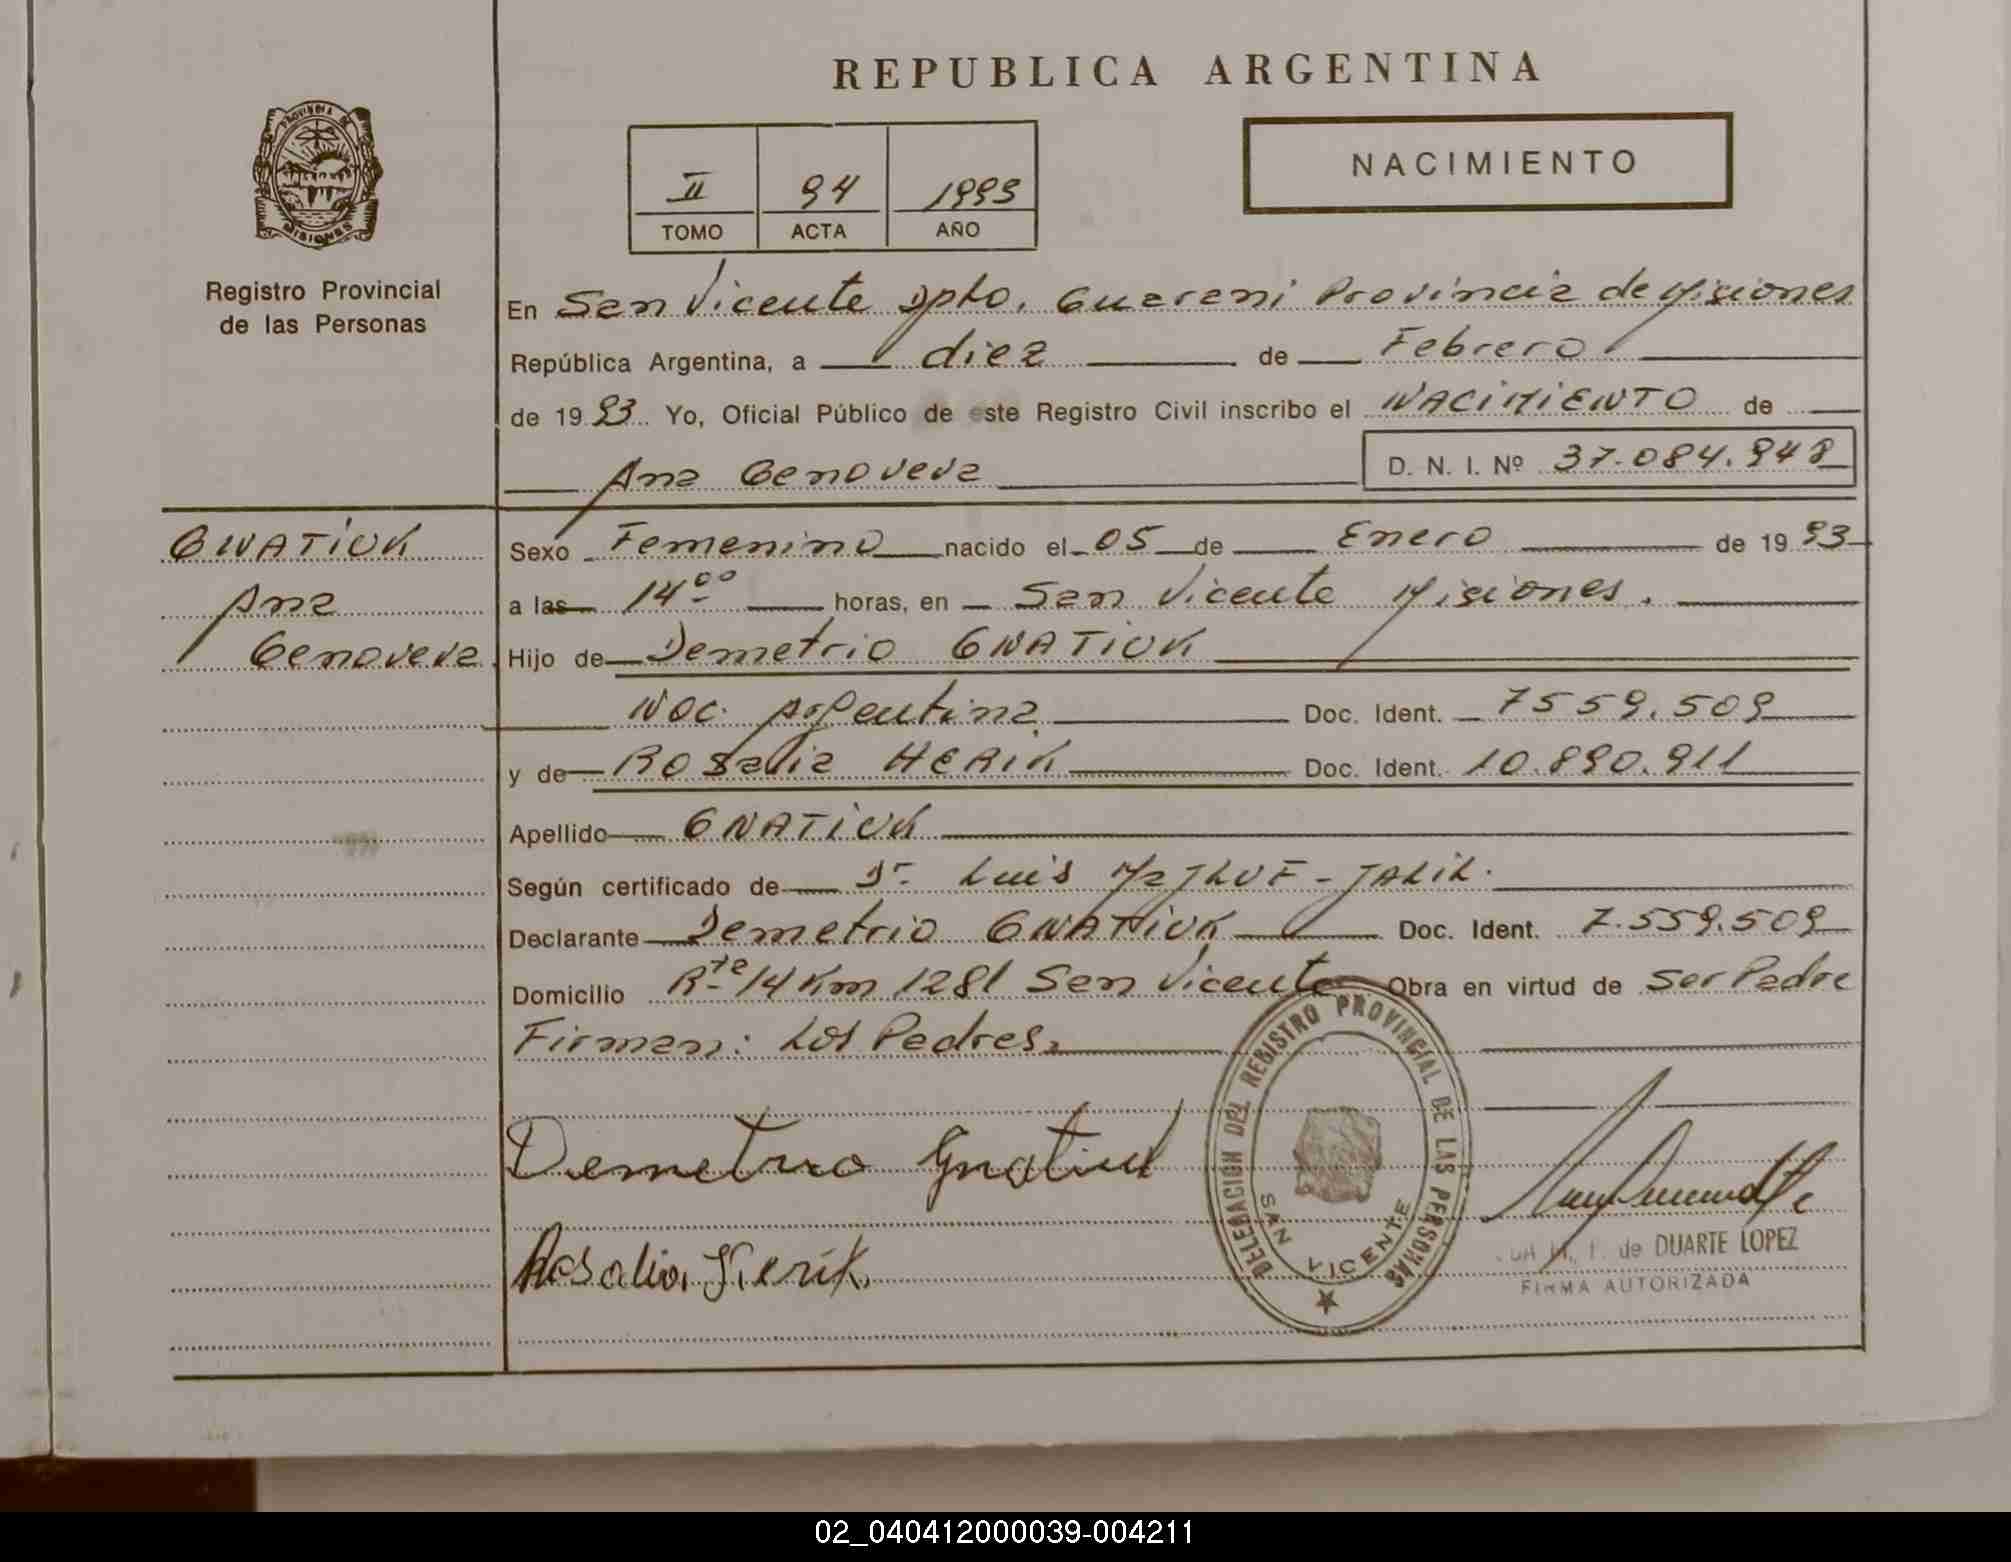 REPUBLICA ARGENTINA
PROVINCIA DE
MISIONES
Registro Provincial
de las Personas
II 94 1993
TOMO ACTA AÑO
NACIMIENTO
En San Vicente Dpto. Guarani Provincia de Misiones
República Argentina, a diez de Febrero
de 1993. Yo, Oficial Público de este Registro Civil inscribo el NACIMIENTO de
Ana Genoveva D. N. I. Nº 37.084.948
GNATIUK
Ana
Genoveva
Sexo Femenino nacido el 05 de Enero de 1993
a las 14⁰⁰ horas, en San Vicente Misiones.
Hijo de Demetrio GNATIUK
Nac. Argentina Doc. Ident. 7559.509
y de Rosalia HERIK Doc. Ident. 10.890.911
Apellido GNATIUK
Según certificado de Dr. Luis JALIL.
Declarante Demetrio GNATIUK Doc. Ident. 7.559.509
Domicilio Rta 14 Km 1281 San Vicente Obra en virtud de Ser Padre
Firman: Los Padres
Demetrio Gnatiuk
Rosalia Herik
DELEGACION DEL REGISTRO PROVINCIAL DE LAS PERSONAS
SAN VICENTE
de DUARTE LOPEZ
FIRMA AUTORIZADA
02_040412000039-004211